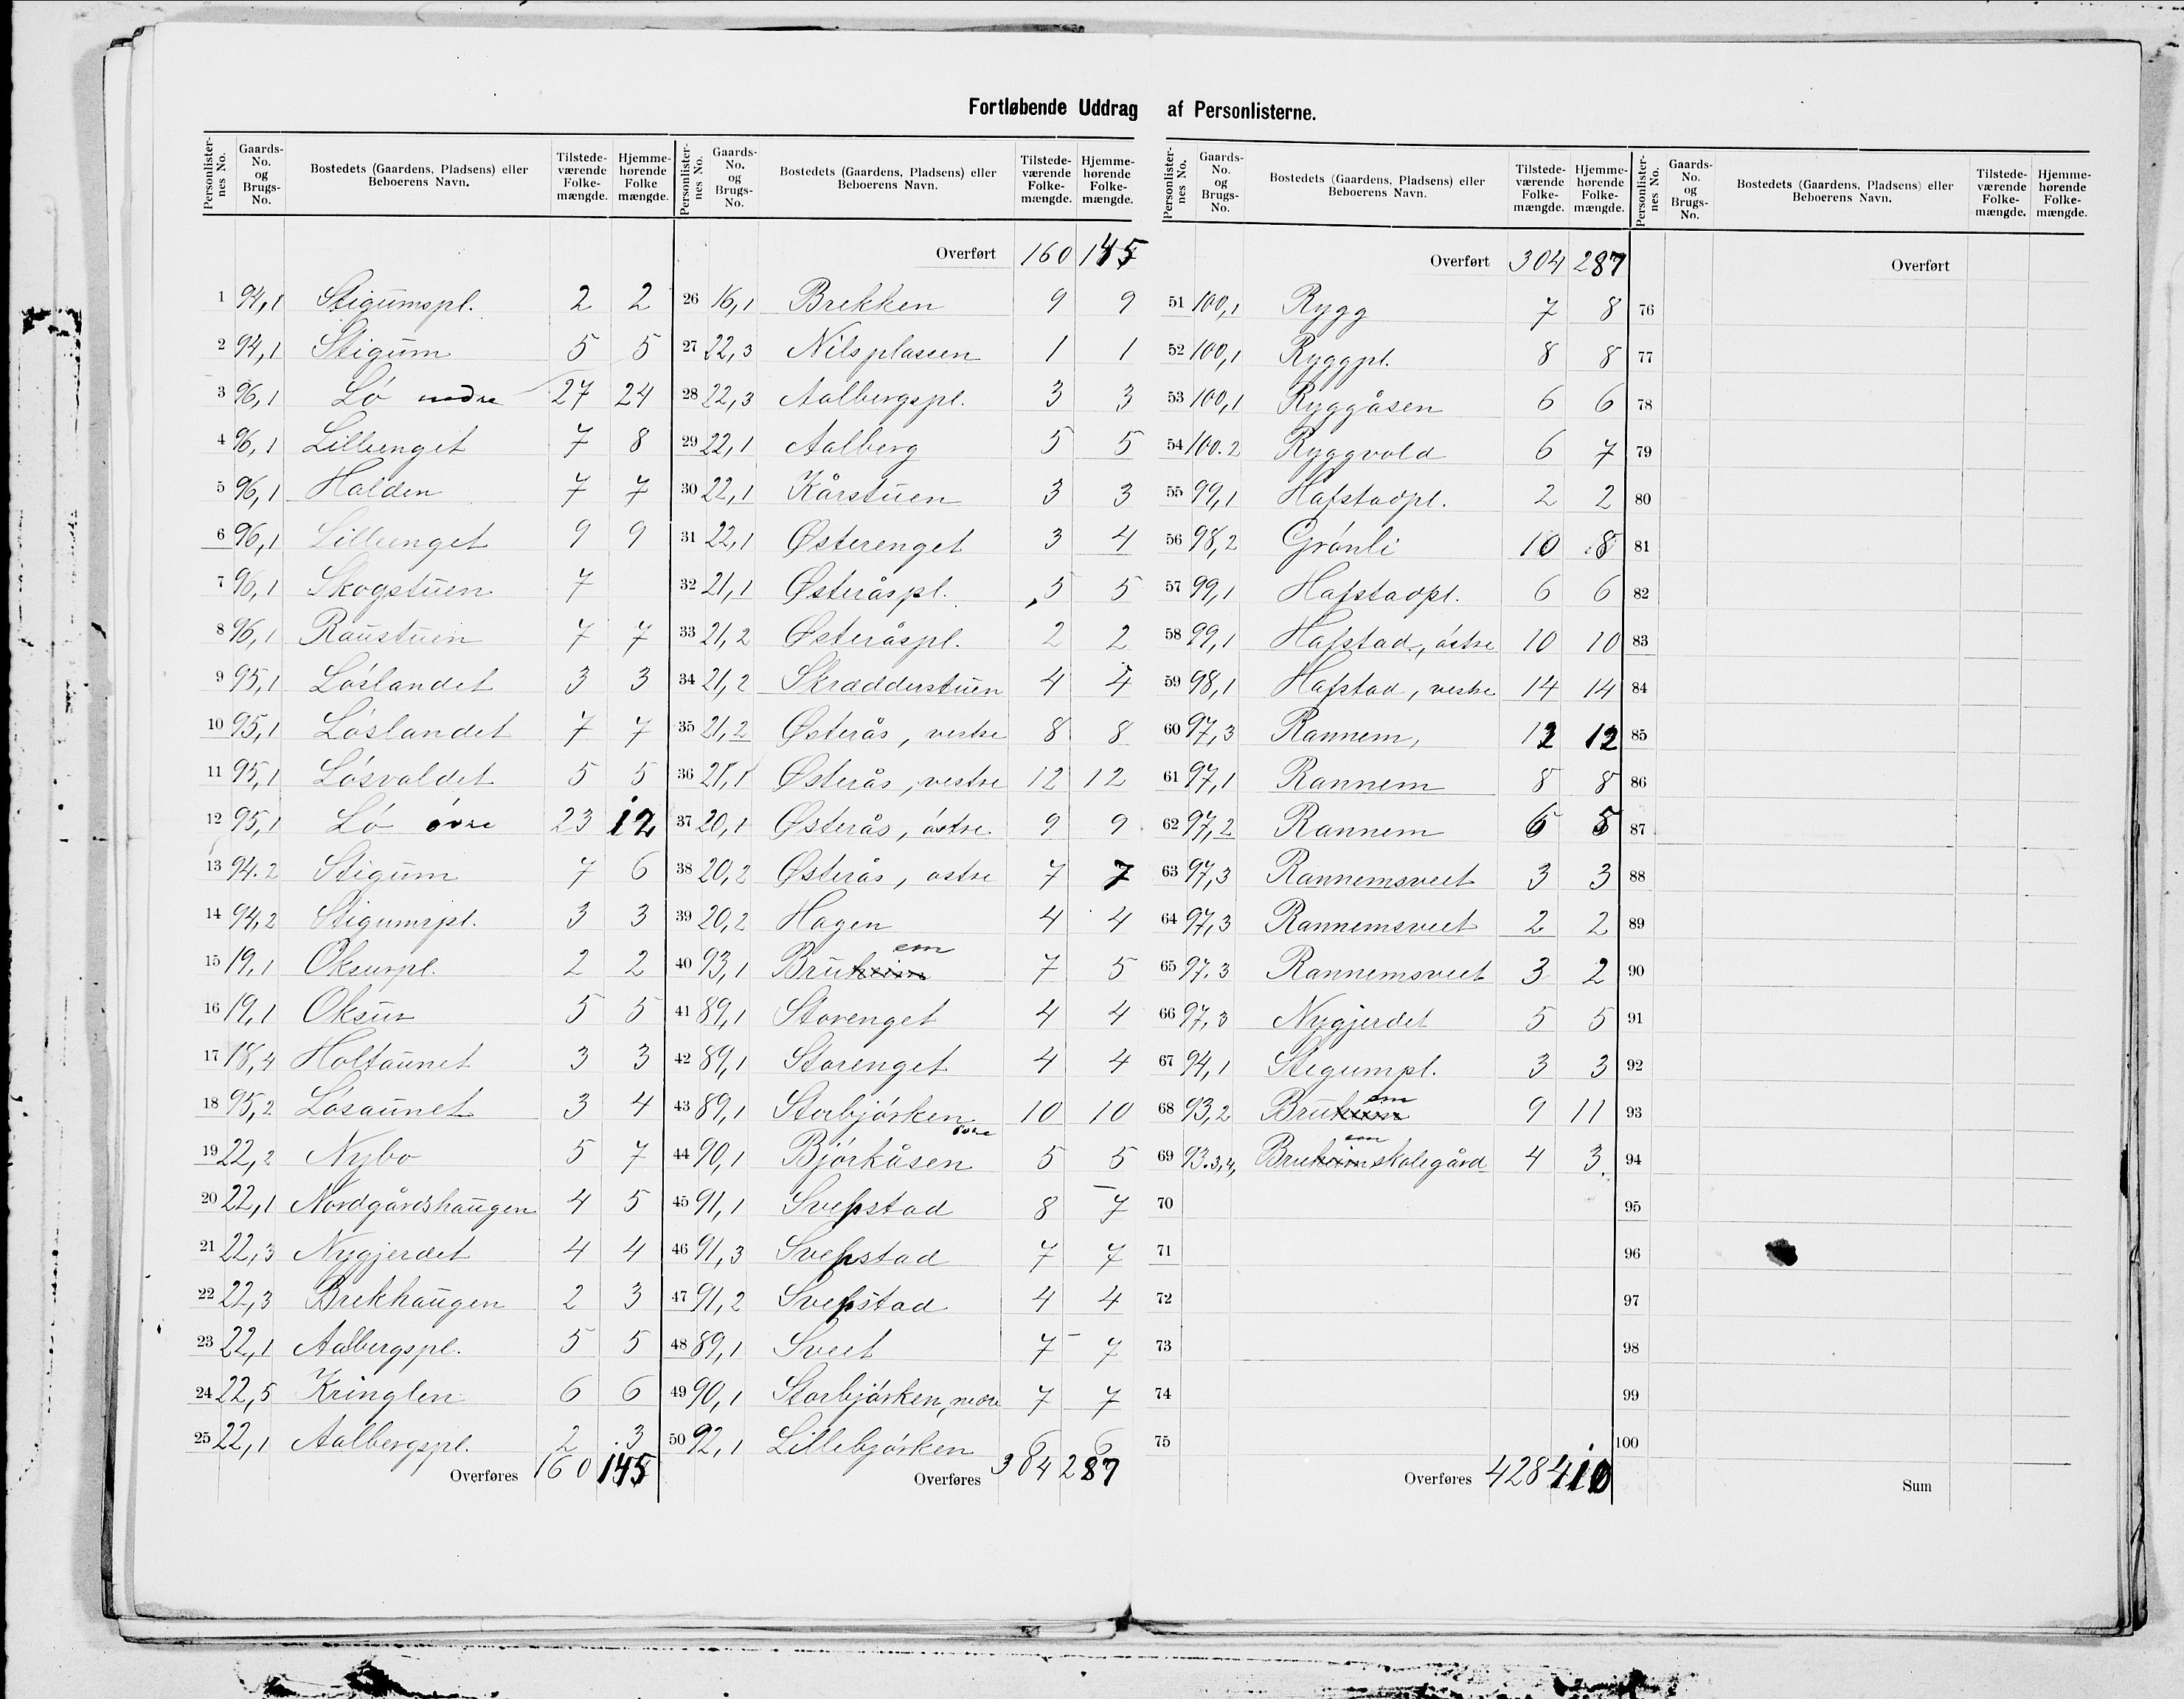 Fortløbende Uddrag af Personlisterne.
Personlister-nes No. Gaards-No. og Brugs-No. Bostedets (Gaardens, Pladsens) eller Beboerens Navn. Tilstede-værende Folke-mængde. Hjemme-hørende Folke mængde.
1 94,1 Stigumspl. 2 2
2 94,1 Stigum 5 5
3 96,1 Ló nedre 27 24
4 96,1 Lillenget 7 8
5 96,1 Halden 7 7
6 96,1 Lillenget 9 9
7 96,1 Skogstuen 7
8 96,1 Raustuen 7 7
9 95,1 Lóslandet 3 3
10 95,1 Lóslandet 7 7
11 95,1 Lósvaldet 5 5
12 95,1 Ló óvre 23 12
13 94.2 Stigum 7 6
14 94,2 Stigumspl. 3 3
15 19,1 Oksurpl. 2 2
16 19,1 Oksur 5 5
17 18,4 Holtaunet 3 3
18 95,2 Lósaunet 3 4
19 22,2 Nybo 5 7
20 22,1 Nordgårdshaugen 4 5
21 22,3 Nygjerdet 4 4
22 22,3 Brekhaugen 2 3
23 22,1 Aalbergspl. 5 5
24 22,5 Kringlen 6 6
25 22,1 Aalbergspl. 2 3
Overføres 160 145
Personlister-nes No. Gaards-No. og Brugs-No. Bostedets (Gaardens, Pladsens) eller Beboerens Navn. Tilstede-værende Folke-mængde. Hjemme-hørende Folke-mængde.
Overført 160 145
26 16,1 Brekken 9 9
27 22,3 Nilsplassen 1 1
28 22,3 Aalbergspl. 3 3
29 22,1 Aalberg 5 5
30 22,1 Kårstuen 3 3
31 22,1 Østerenget 3 4
32 21,1 Østeråspl. 5 5
33 21,2 Østeråspl. 2 2
34 21,2 Skrædderstuen 4 4
35 21,2 Østerås, vestre 8 8
36 21,1 Østerås, vestre 12 12
37 20,1 Østerås, óstre 9 9
38 20,2 Østerås, ostre 7 7
39 20,2 Hagen 4 4
40 93,1 Bruheim em 7 5
41 89,1 Storenget 4 4
42 89,1 Storenget 4 4
43 89,1 Storbjórken óvre 10 10
44 90,1 Bjórkåsen 5 5
45 91,1 Svepstad 8 7
46 91,3 Svepstad 7 7
47 91,2 Svepstad 4 4
48 89,1 Sveet 7 7
49 90,1 Storbjórken, nedre 7 7
50 92,1 Lillebjórken 6 6
Overføres 304 287
Personlister-nes No. Gaards-No. og Brugs-No. Bostedets (Gaardens, Pladsens) eller Beboerens Navn. Tilstede-værende Folke-mængde. Hjemme-hørende Folke-mængde.
Overført 304 287
51 100,1 Rygg 7 8
52 100,1 Ryggpl. 8 8
53 100,1 Ryggåsen 6 6
54 100.2 Ryggvold 6 7
55 99,1 Hafstadpl. 2 2
56 98,2 Grónli 10 8
57 99,1 Hafstadpl. 6 6
58 99,1 Hafstad, óstre 10 10
59 98,1 Hafstad, vestre 14 14
60 97,3 Rannem, 12 12
61 97,1 Rannem 8 8
62 97,2 Rannem 6 5
63 97,3 Rannemsveet 3 3
64 97,3 Rannemsveet 2 2
65 97.3 Rannemsveet 3 2
66 97,3 Nygjerdet 5 5
67 94,1 Stegumpl. 3 3
68 93,2 Bruheim em 9 11
69 93.3,4, Bruheimskolegård em 4 3
70
71
72
73
74
75
Overføres 428 410
Personlister-nes No. Gaards-No. og Brugs-No. Bostedets (Gaardens, Pladsens) eller Beboerens Navn. Tilstede-værende Folke-mængde. Hjemme-hørende Folke-mængde.
Overført
76
77
78
79
80
81
82
83
84
85
86
87
88
89
90
91
92
93
94
95
96
97
98
99
100
Sum